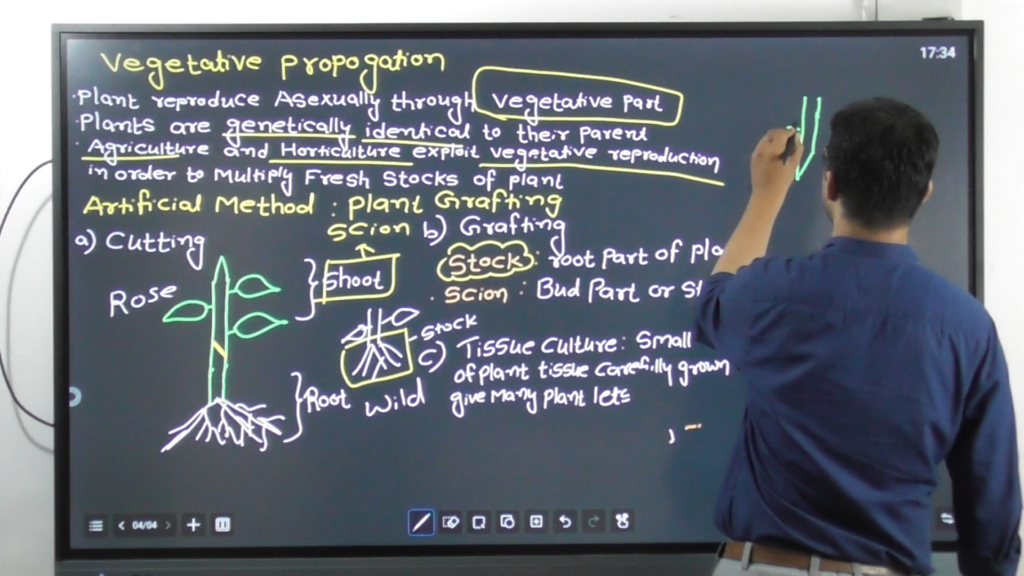 17:34
Vegetative propogation
·Plant reproduce Asexually through vegetative part
·Plants are genetically identical to their parent
·Agriculture and Horticulture exploit vegetative reproduction
in order to Multiply Fresh Stocks of plant
Artificial Method : Plant Grafting
a) Cutting
Scion
b) Grafting
Rose
Shoot
Stock : root part of
· Scion : Bud Part or
Stock
c) Tissue Culture: Small
of plant tissue carefully grown
give many plant lets
Root
Wild
04/04